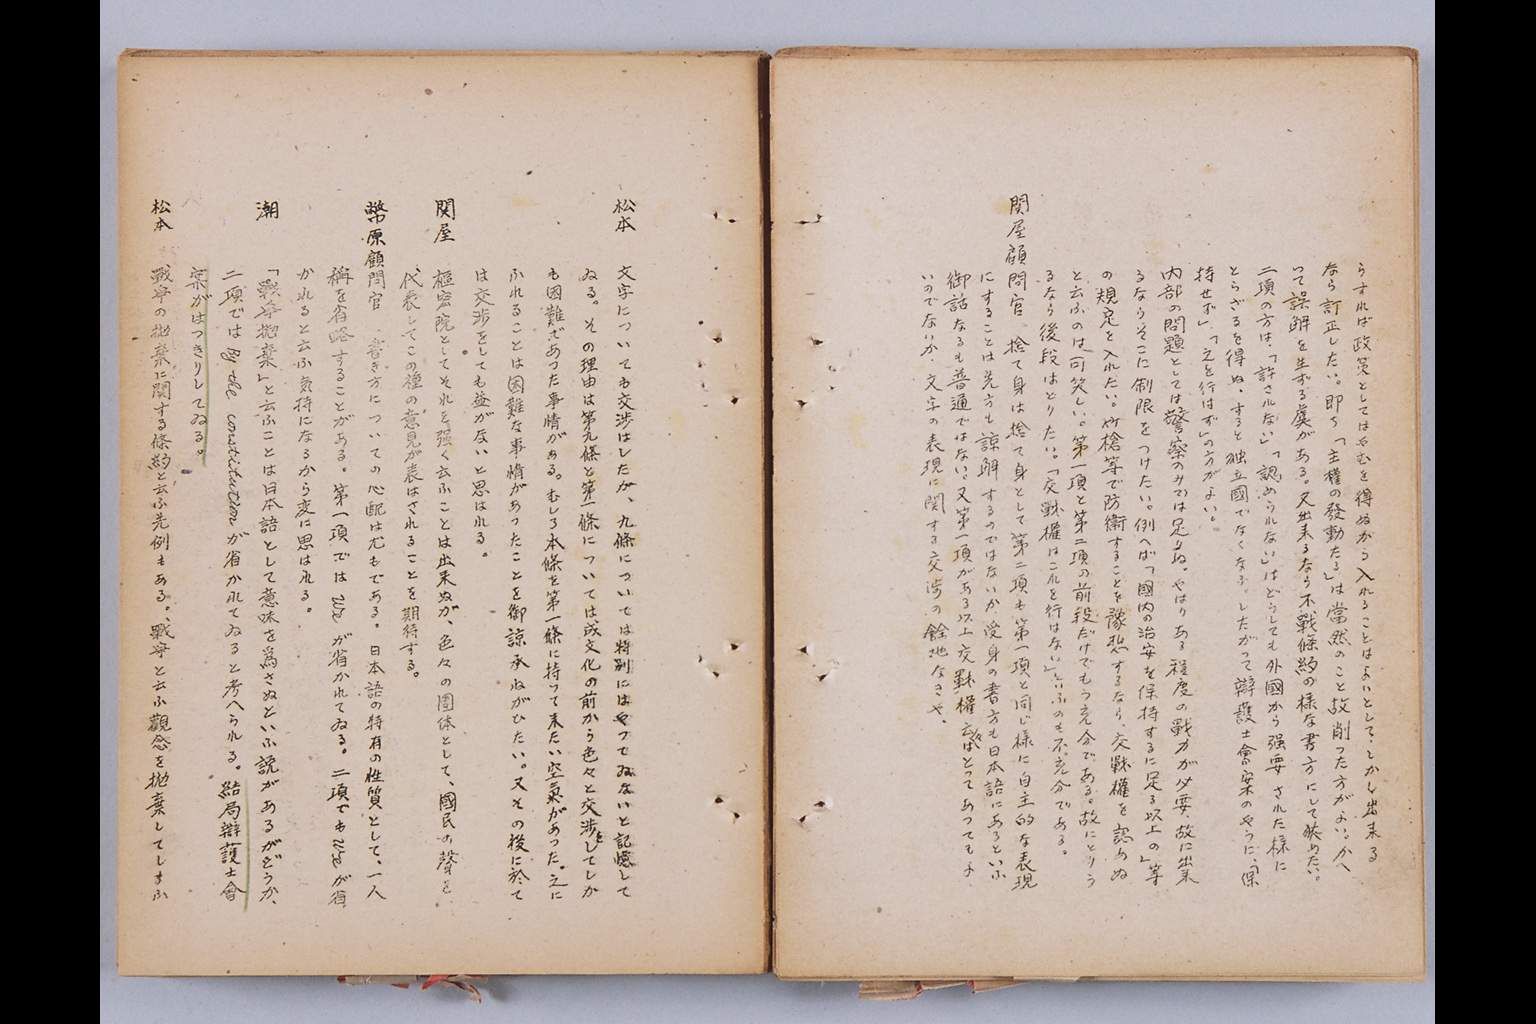 らすれば政策としてはやむを得ぬから入れることはよいとして、とかし出来る
なら訂正したい。即ち「主權の發動たる」は當然のこと故削つた方がよい。かへ
つて誤解を生ずる虞がある。又出来るなら不戰條約の様な書方にして改めたい。
二項の方は、「許されない」「認められない」はどうしても外國から强要された様に
とらざるを得ぬ。すると独立國でなくなる。したがつて辯護士會案のやうに、「保
持せず」「之を行はず」の方がよい。
内部の問題としては警察のみでは足りぬ。やはりある程度の戰力が必要、故に出来
るならそこに制限をつけたい。例へば「國内の治安を保持するに足る以上の」等
の規定を入れたい。竹槍等で防衛することを豫想するなら、交戰權を認めぬ
と云ふのは可笑しい。第一項と第二項の前段だけでもう充分である。故にとりう
るなら後段はとりたい。「交戰權はこれを行はない」といふのも不充分である。
関屋顧問官 捨て身は捨て身として第二項も第一項と同じ様に自主的な表現
にすることは先方も諒解するのではないか。受身の書方も日本語にあるといふ
御話なるも普通ではない。又第一項がある以上交戰權云々はとつてあつてもよ
いのでないか。文字の表現に関する交渉の餘地なきや、
松本 文字についても交渉はしたが、九條については特別にはやつてゐないと記憶して
ゐる。その理由は第九條と第一條については成文化の前から色々と交渉をしてしか
も困難であつた事情がある。むしろ本條を第一條に持つて来たい空氣があつた。之に
ふれることは困難な事情があつたことを御諒承ねがひたい。又その後に於て
は交渉をしても益がないと思はれる。
関屋 樞密院としてそれを强く云ふことは出来ぬが、色々の團体として、國民の聲を
代表してこの種の意見が表はされることを期待する。
幣原顧問官 書き方についての心配は尤もである。日本語の特有の性質として、一人
稱を省略することがある。第一項では we が省かれてゐる。二項でも we が省
かれると云ふ気持になるから変に思はれる。
潮 「戰爭抛棄」と云ふことは日本語として意味を為さぬといふ説があるがどうか、
二項では By the constitution が省かれてゐると考へられる。結局辯護士會
案がはつきりしてゐる。
松本 戰爭の抛棄に関する條約と云ふ先例もある。戰爭と云ふ觀念を抛棄してしまふ